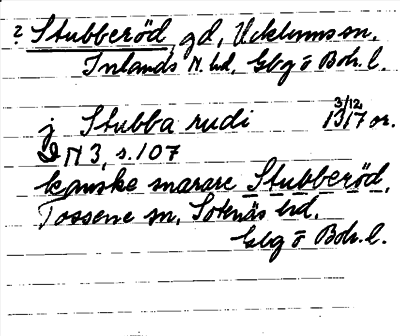 ? Stubberöd, gd, Ucklums sn,
Inlands N. hd, Gbg o Boh. l.
j Stubba rudi 3/12 1317 or.
DN 3, s. 107
kanske snarare Stubberöd,
Tossene sn, Sotenäs hd,
Gbg o Boh. l.